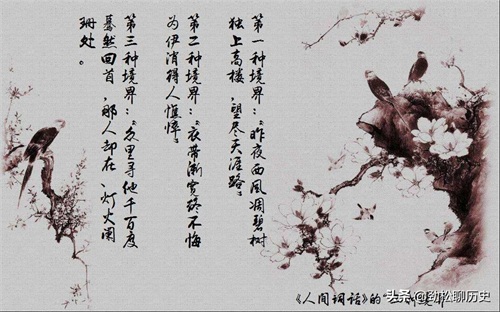 第一种境界："昨夜西风凋碧树
独上高楼，望尽天涯路。
第二种境界："衣带渐宽终不悔
为伊消得人憔悴"
第三种境界："众里寻他千百度
蓦然回首，那人却在，灯火阑
珊处。
《人间词话》的
头条@劲松聊历史